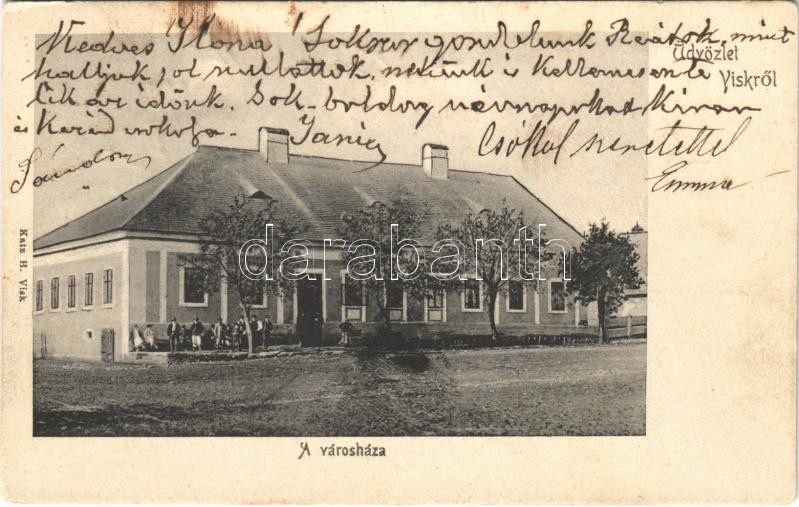 Kedves Ilona! Sokszor gondolunk Reátok, mint
halljuk jól mulattok, nekünk is kellemesen te
lik az időnk. Sok boldog névnapokat kíván
és
Sándor
Csókol szeretettel
Emma
Üdvözlet
Viskről
Katz H. Visk
darabanth
A városháza